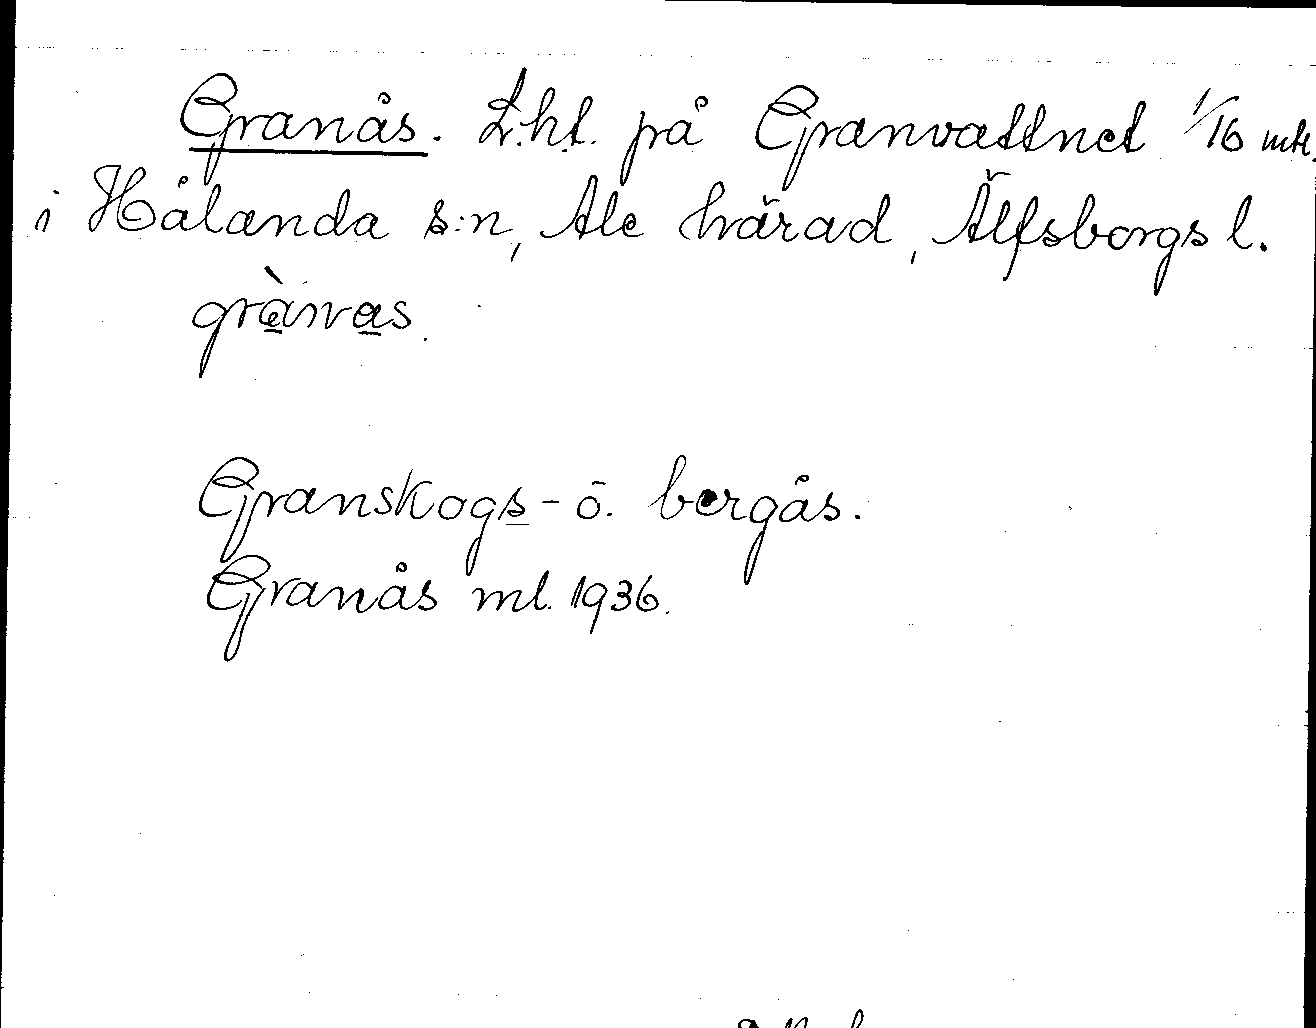 Granås. L.ht. på Granvattnet 1/16 mtl.
i Hålanda s:n, Ale härad, Älfsborgs l.
grànas.
Granskogs- o. bergås.
Granås ml. 1936.